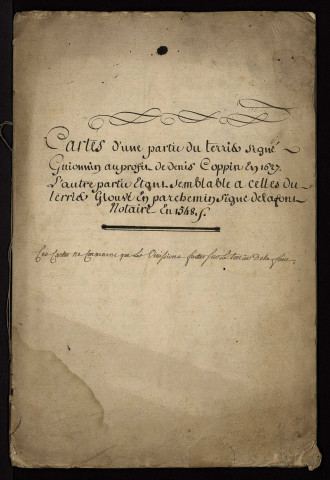 Cartes d'une partie du terrié signé
Guiomin au profit de denis Coppin En 1627.
L'autre partie Etant Semblable a celles du
terrié Trouvé En parchemin Signé delafont
Notaire En 1548.
Ces Cartes ne Concernent que les Divisions faites sur le terroir de la